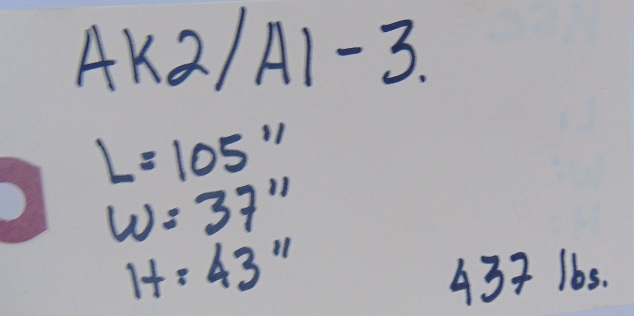 AK2/A1-3.
L=105"
W=37"
H=43"
437 lbs.